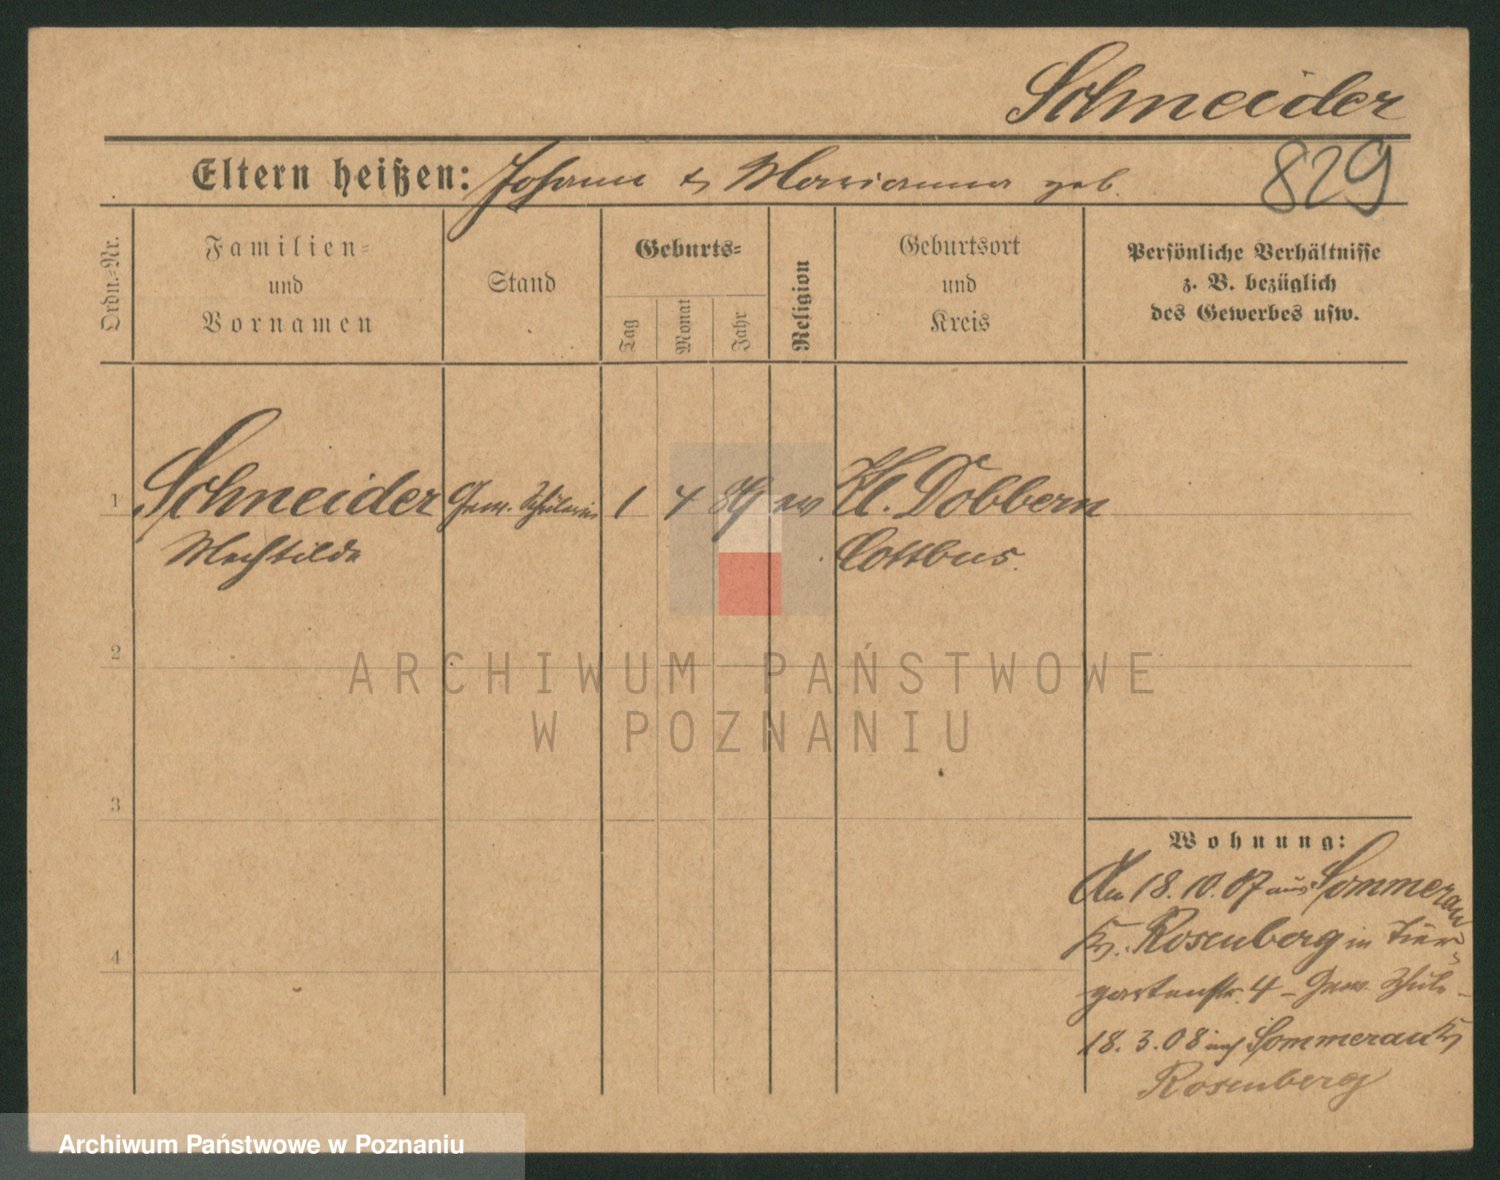 Schneider
Eltern heißen: Johann & Marianna geb.
829
Ordn.=Nr.
Familien=
und
Vornamen
Stand
Geburts=
Tag
Monat
Jahr
Religion
Geburtsort
und
Kreis
Persönliche Verhältnisse
z. B. bezüglich
des Gewerbes usw.
1 Schneider Gew. Schülerin 1 4 ev Kl. Döbbern
Mechtilde Cottbus.
2
ARCHIWUM PAŃSTWOWE
W POZNANIU
3
Wohnung:
18.10.07 aus Sommerau
Kr. Rosenberg in Tier-
gartenstr. 4 - Gew. Schule -
18.3.08 nach Sommerau Kr
Rosenberg
4
Archiwum Państwowe w Poznaniu